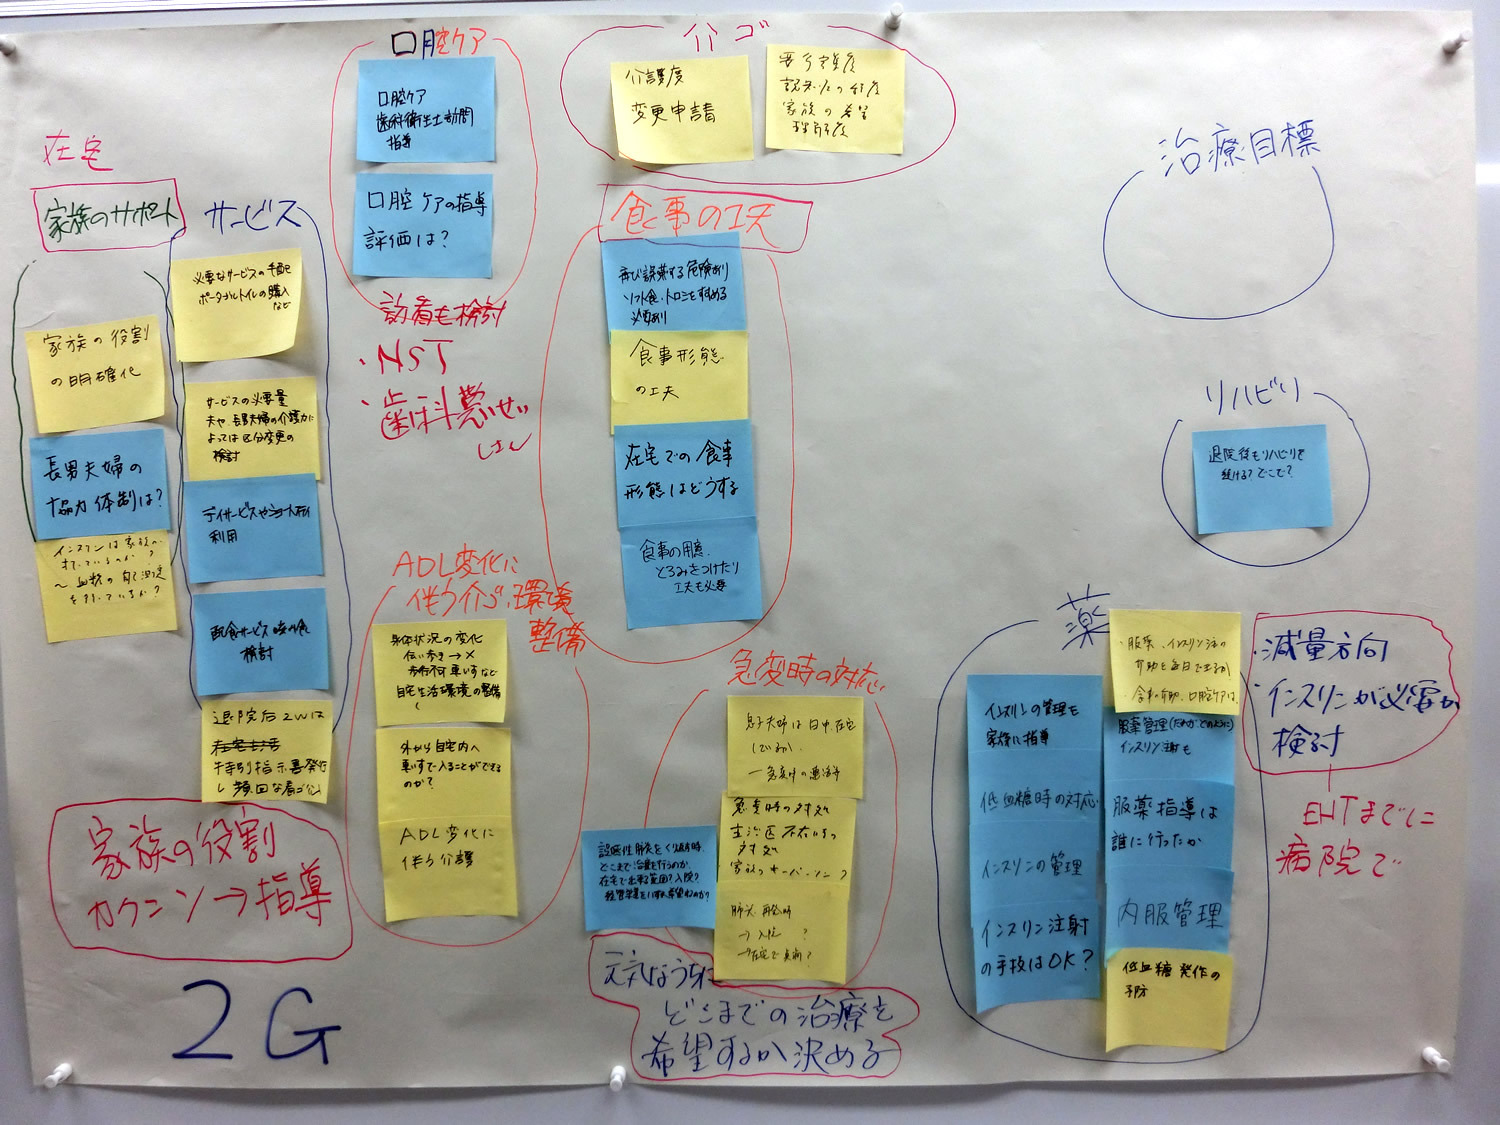 在宅
家族のサポート
家族の役割
の明確化
長男夫婦の
協力体制は?
インスリンは家族が
サービス
必要なサービスの手配
ポータブルトイレの購入
など
サービスの必要量
夫や、長男夫婦の介護力に
よっては区分変更の
検討
デイサービスやショートステイ
利用
配食サービス
検討
退院后2Wは
特別指示書発行
し頻回な看ゴ
家族の役割
カクニン→指導
2G
口腔ケア
口腔ケア
歯科衛生士訪問
指導
口腔ケアの指導
評価は?
訪看も検討
・NST
・歯科
介ゴ
介護度
変更申請
家族の希望
理解度
食事の工夫
再び誤嚥する危険あり
ソフト食、トロミをすすめる
必要あり
食事形態
の工夫
在宅での食事
形態はどうする
食事の用意、
とろみをつけたり
工夫も必要
ADL変化に
伴う介ゴ、環境
整備
身体状況の変化
伝い歩き→×
歩行不可 車いすなど
自宅生活環境の整備
外から自宅内へ
車いすで入ることができる
のか?
ADL変化に
伴う介護
急変時の対応
息子夫婦は日中、在宅
しているか。
急変時の対処
主治医不在いちの
対処
家族のキーパーソン?
肺炎再発時
→入院 ?
→在宅で点滴?
誤嚥性肺炎をくり返す時、
どこまで治療を行うのか、
元気なうちに
どこまでの治療を
希望するか決める
治療目標
リハビリ
退院後もリハビリを
続ける?どこで?
薬
インスリンの管理も
家族に指導
低血糖時の対応
インスリンの管理
インスリン注射
の手技はOK?
・服薬、インスリン注の
介助を毎日できるか
・食事の介助、口腔ケアは、
服薬管理(だれが どのように)
インスリン注射も
服薬指導は
誰に行ったか
内服管理
低血糖発作の
予防
・減量方向
・インスリンが必要か
検討
EHTまでに
病院で